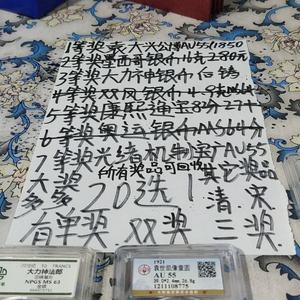 1等奖袁大头公博AU55 1850
2等奖墨西哥银币1克280元
3等奖大力神银币
4等奖双凤银币
5等奖康熙通宝83分27
6等奖奥运银币 64分
7等奖光绪机制宝广AU55
所有奖品可回收
多多 20选1 其它奖品清宋
有单奖 双奖 三奖
50 FRANCS
大力神法郎
NPGS MS 63
1921
袁世凯像壹圆
AU 55
39.0*2.4mm 26.8g
1211108775